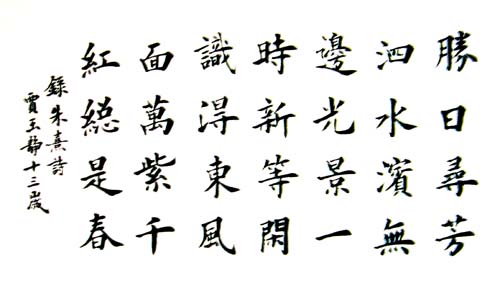 勝日尋芳
泗水濱無
邊光景一
時新等閑
識得東風
面萬紫千
紅總是春
錄朱熹詩
賈玉靜十三歲